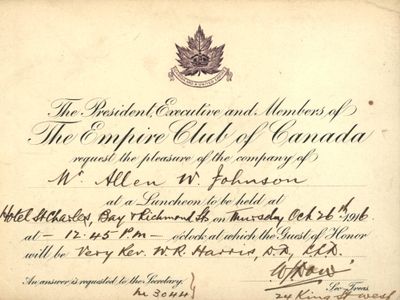 The President, Executive and Members of
The Empire Club of Canada
request the pleasure of the company of
Mr Allen W. Johnson
at a Luncheon to be held at
Hotel St Charles, Bay & Richmond St on Thursday Oct 26th 1916
at - 12.45 P.M. - o'clock at which the Guest of Honor
will be Very Rev. W. R. Harris, D.D., LL.D.
An answer is requested to the Secretary.
M 3044
Sec-Treas.
24 King St west